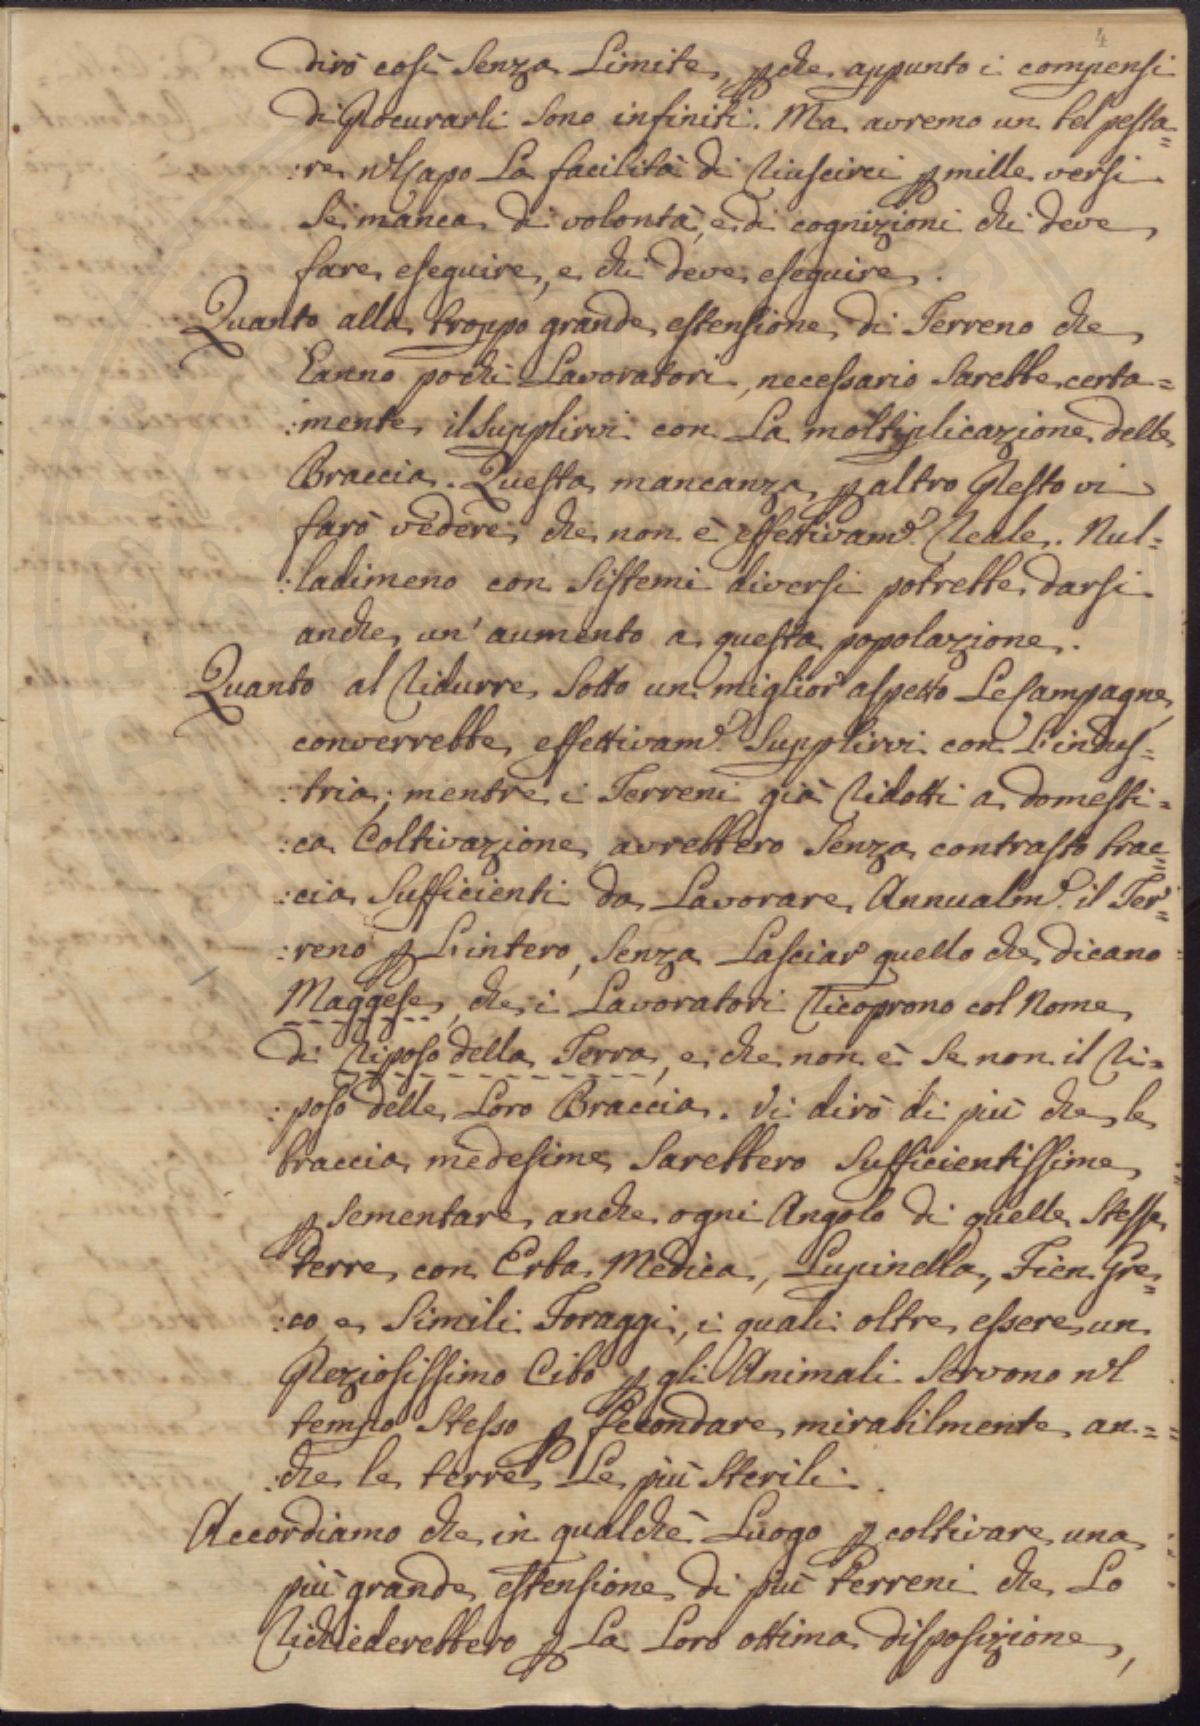 4
dirò così senza Limite, pche appunto i compensi
di Procurarli sono infiniti. Ma avremo un bel pesta=
:re nel Capo La facilità di riuscirci p mille versi
se manca di volontà, e di cognizioni chi deve
fare eseguire, e chi deve eseguire.
Quanto alla troppo grande estensione di Terreno che
hanno pochi Lavoratori, necessario sarebbe certa=
:mente il supplirvi con La moltiplicazione delle
Braccia. Questa mancanza p altro Presto vi
farò vedere, che non è effettivam.e reale. Nul=
:ladimeno con sistemi diversi potrebbe darsi
anche un' aumento a questa popolazione.
Quanto al ridurre sotto un miglior aspetto Le Campagne,
converrebbe effettivam.e supplirvi con L'indus=
:tria; mentre i Terreni già ridotti a domesti=
:ca Coltivazione avrebbero senza contrasto brac=
:cia sufficienti da Lavorare Annualm.e il Ter=
:reno p L'intero, senza Lasciar quello che dicano
Maggese, che i Lavoratori ricoprono col Nome
di riposo della Terra, e che non è se non il ri=
:poso delle Loro Braccia. Vi dirò di più che le
braccia medesime sarebbero sufficientissime
p sementare anche ogni Angolo di quelle stesse
terre con Erba Medica, Lupinella, Fien Gre=
:co, e simili Foraggi, i quali oltre essere un
Preziosissimo Cibo p gli Animali servono nel
tempo stesso p fecondare mirabilmente an=
:che le terre Le più sterili.
Accordiamo che in qualche Luogo p coltivare una
più grande estensione di più terreni che Lo
richiederebbero p La Loro ottima disposizione,